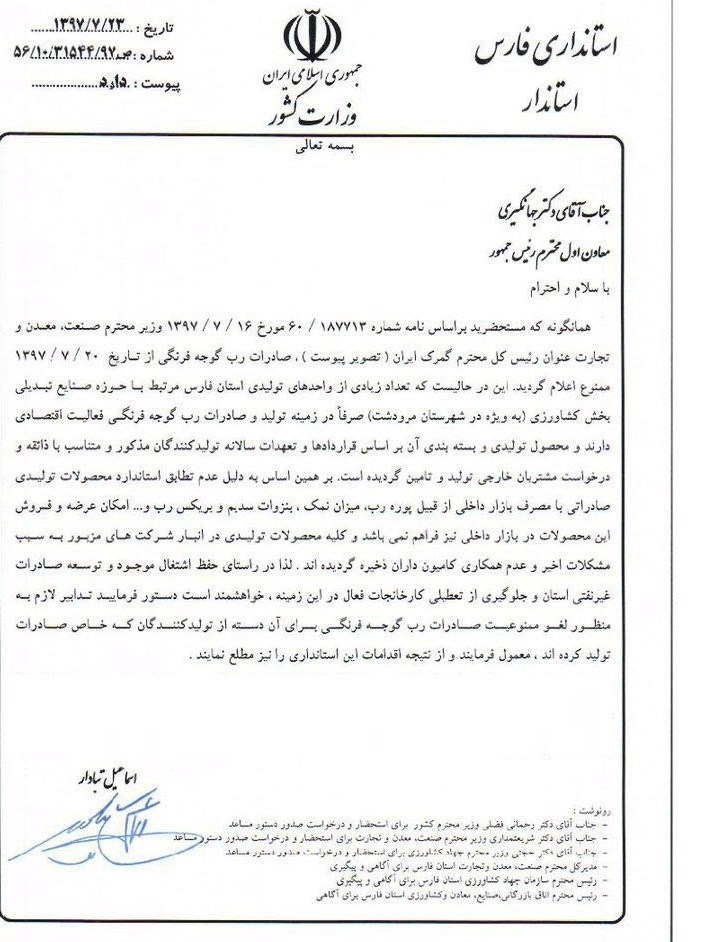 استانداری فارس
استاندار
جمهوری اسلامی ایران
وزارت کشور
تاریخ : ۱۳۹۷/۷/۲۳
شماره : ص۵۶/۱۰/۳۱۵۴۴/۹۷
پیوست : دارد
بسمه تعالی
جناب آقای دکتر جهانگیری
معاون اول محترم رئیس جمهور
با سلام و احترام
همانگونه که مستحضرید براساس نامه شماره ۱۸۷۷۱۳ / ۶۰ مورخ ۱۶ / ۷ / ۱۳۹۷ وزیر محترم صنعت، معدن و
تجارت عنوان رئیس کل محترم گمرک ایران ( تصویر پیوست ) ، صادرات رب گوجه فرنگی از تاریخ ۲۰ / ۷ / ۱۳۹۷
ممنوع اعلام گردید. این در حالیست که تعداد زیادی از واحدهای تولیدی استان فارس مرتبط با حوزه صنایع تبدیلی
بخش کشاورزی (به ویژه در شهرستان مرودشت) صرفاً در زمینه تولید و صادرات رب گوجه فرنگی فعالیت اقتصادی
دارند و محصول تولیدی و بسته بندی آن بر اساس قراردادها و تعهدات سالانه تولیدکنندگان مذکور و متناسب با ذائقه و
درخواست مشتریان خارجی تولید و تامین گردیده است. بر همین اساس به دلیل عدم تطابق استاندارد محصولات تولیدی
صادراتی با مصرف بازار داخلی از قبیل پوره رب، میزان نمک ، بنزوات سدیم و بریکس رب و... امکان عرضه و فروش
این محصولات در بازار داخلی نیز فراهم نمی باشد و کلیه محصولات تولیدی در انبار شرکت های مزبور به سبب
مشکلات اخیر و عدم همکاری کامیون داران ذخیره گردیده اند . لذا در راستای حفظ اشتغال موجود و توسعه صادرات
غیرنفتی استان و جلوگیری از تعطیلی کارخانجات فعال در این زمینه ، خواهشمند است دستور فرمایید تدابیر لازم به
منظور لغو ممنوعیت صادرات رب گوجه فرنگی برای آن دسته از تولیدکنندگان که خاص صادرات
تولید کرده اند ، معمول فرمایند و از نتیجه اقدامات این استانداری را نیز مطلع نمایند .
اسماعیل تبادار
رونوشت :
- جناب آقای دکتر رحمانی فضلی وزیر محترم کشور برای استحضار و درخواست صدور دستور مساعد
- جناب آقای دکتر شریعتمداری وزیر محترم صنعت، معدن و تجارت برای استحضار و درخواست صدور دستور مساعد
- جناب آقای دکتر حجتی وزیر محترم جهاد کشاورزی برای استحضار و درخواست صدور دستور مساعد
- مدیرکل محترم صنعت، معدن وتجارت استان فارس برای آگاهی و پیگیری
- رئیس محترم سازمان جهاد کشاورزی استان فارس برای آگاهی و پیگیری
- رئیس محترم اتاق بازرگانی،صنایع، معادن وکشاورزی استان فارس برای آگاهی